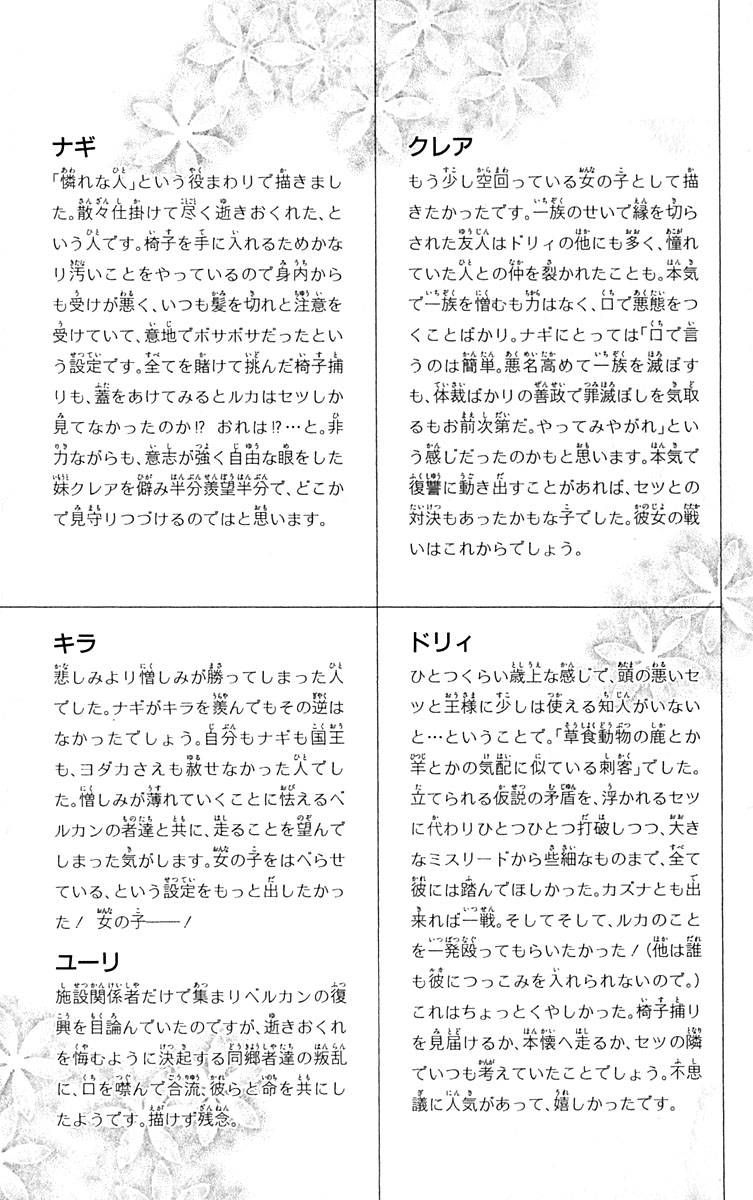 ナギ
「憐れな人」という役まわりで描きまし
た。散々仕掛けて尽く逝きおくれた、と
いう人です。椅子を手に入れるためかな
り汚いことをやっているので身内から
も受けが悪く、いつも髪を切れと注意を
受けていて、意地でボサボサだったとい
う設定です。全てを賭けて挑んだ椅子捕
りも、蓋をあけてみるとルカはセツしか
見てなかったのか!? おれは!?…と。非
力ながらも、意志が強く自由な眼をした
妹クレアを僻み半分羨望半分で、どこか
で見守りつづけるのではと思います。
クレア
もう少し空回っている女の子として描
きたかったです。一族のせいで縁を切ら
された友人はドリィの他にも多く、憧れ
ていた人との仲を裂かれたことも。本気
で一族を憎むも力はなく、口で悪態をつ
くことばかり。ナギにとっては「口で言
うのは簡単。悪名高めて一族を滅ぼす
も、体裁ばかりの善政で罪滅ぼしを気取
るもお前次第だ。やってみやがれ」とい
う感じだったのかもと思います。本気で
復讐に動き出すことがあれば、セツとの
対決もあったかもな子でした。彼女の戦
いはこれからでしょう。
キラ
悲しみより憎しみが勝ってしまった人
でした。ナギがキラを羨んでもその逆は
なかったでしょう。自分もナギも国王
も、ヨダカさえも赦せなかった人でし
た。憎しみが薄れていくことに怯えるベ
ルカンの者達と共に、走ることを望んで
しまった気がします。女の子をはべらせ
ている、という設定をもっと出したかっ
た! 女の子——!
ユーリ
施設関係者だけで集まりベルカンの復
興を目論んでいたのですが、逝きおくれ
を悔むように決起する同郷者達の叛乱
に、口を噤んで合流、彼らと命を共にし
たようです。描けず残念。
ドリィ
ひとつくらい歳上な感じで、頭の悪いセ
ツと王様に少しは使える知人がいない
と…ということで。「草食動物の鹿とか
羊とかの気配に似ている刺客」でした。
立てられる仮説の矛盾を、浮かれるセツ
に代わりひとつひとつ打破しつつ、大き
なミスリードから些細なものまで、全て
彼には踏んでほしかった。カズナとも出
来れば一戦。そしてそして、ルカのこと
を一発殴ってもらいたかった!(他は誰
も彼につっこみを入れられないので。)
これはちょっとくやしかった。椅子捕り
を見届けるか、本懐へ走るか、セツの隣
でいつも考えていたことでしょう。不思
議に人気があって、嬉しかったです。